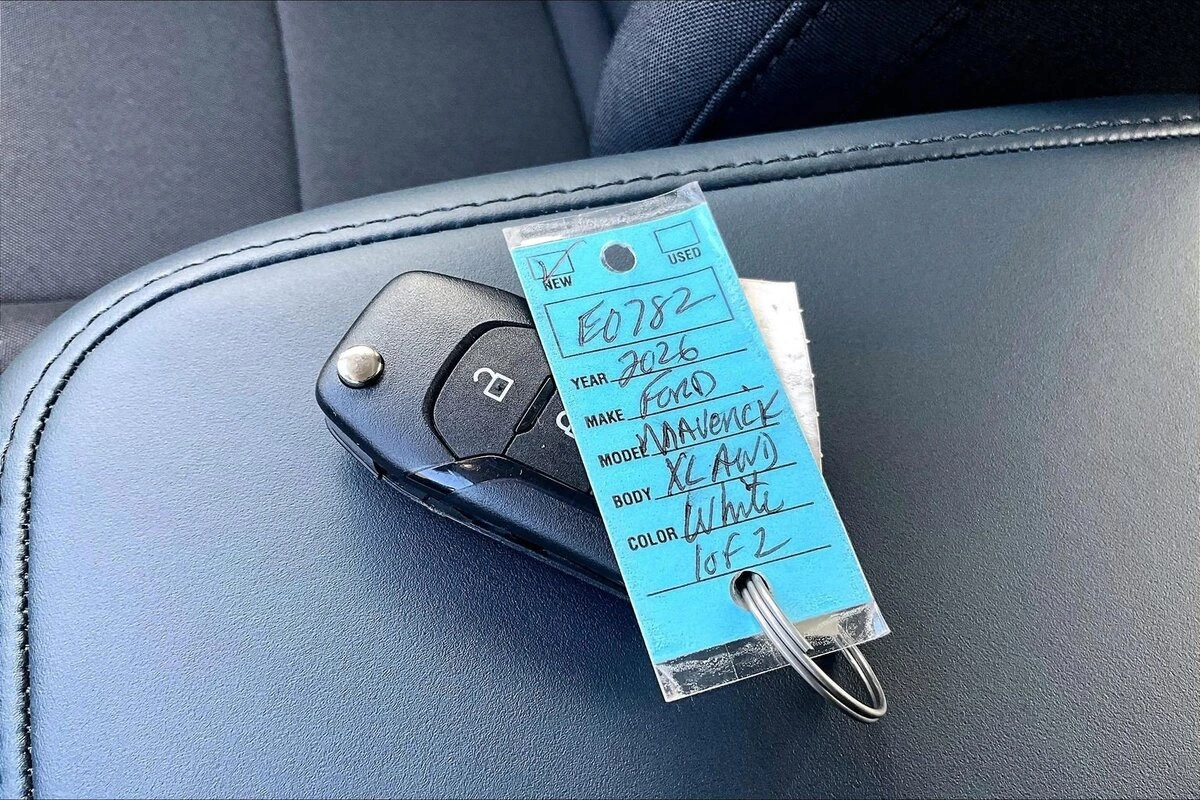 NEW USED
E0782
YEAR 2026
MAKE FORD
MODEL MAVERICK
BODY XL AWD
COLOR White
1 of 2